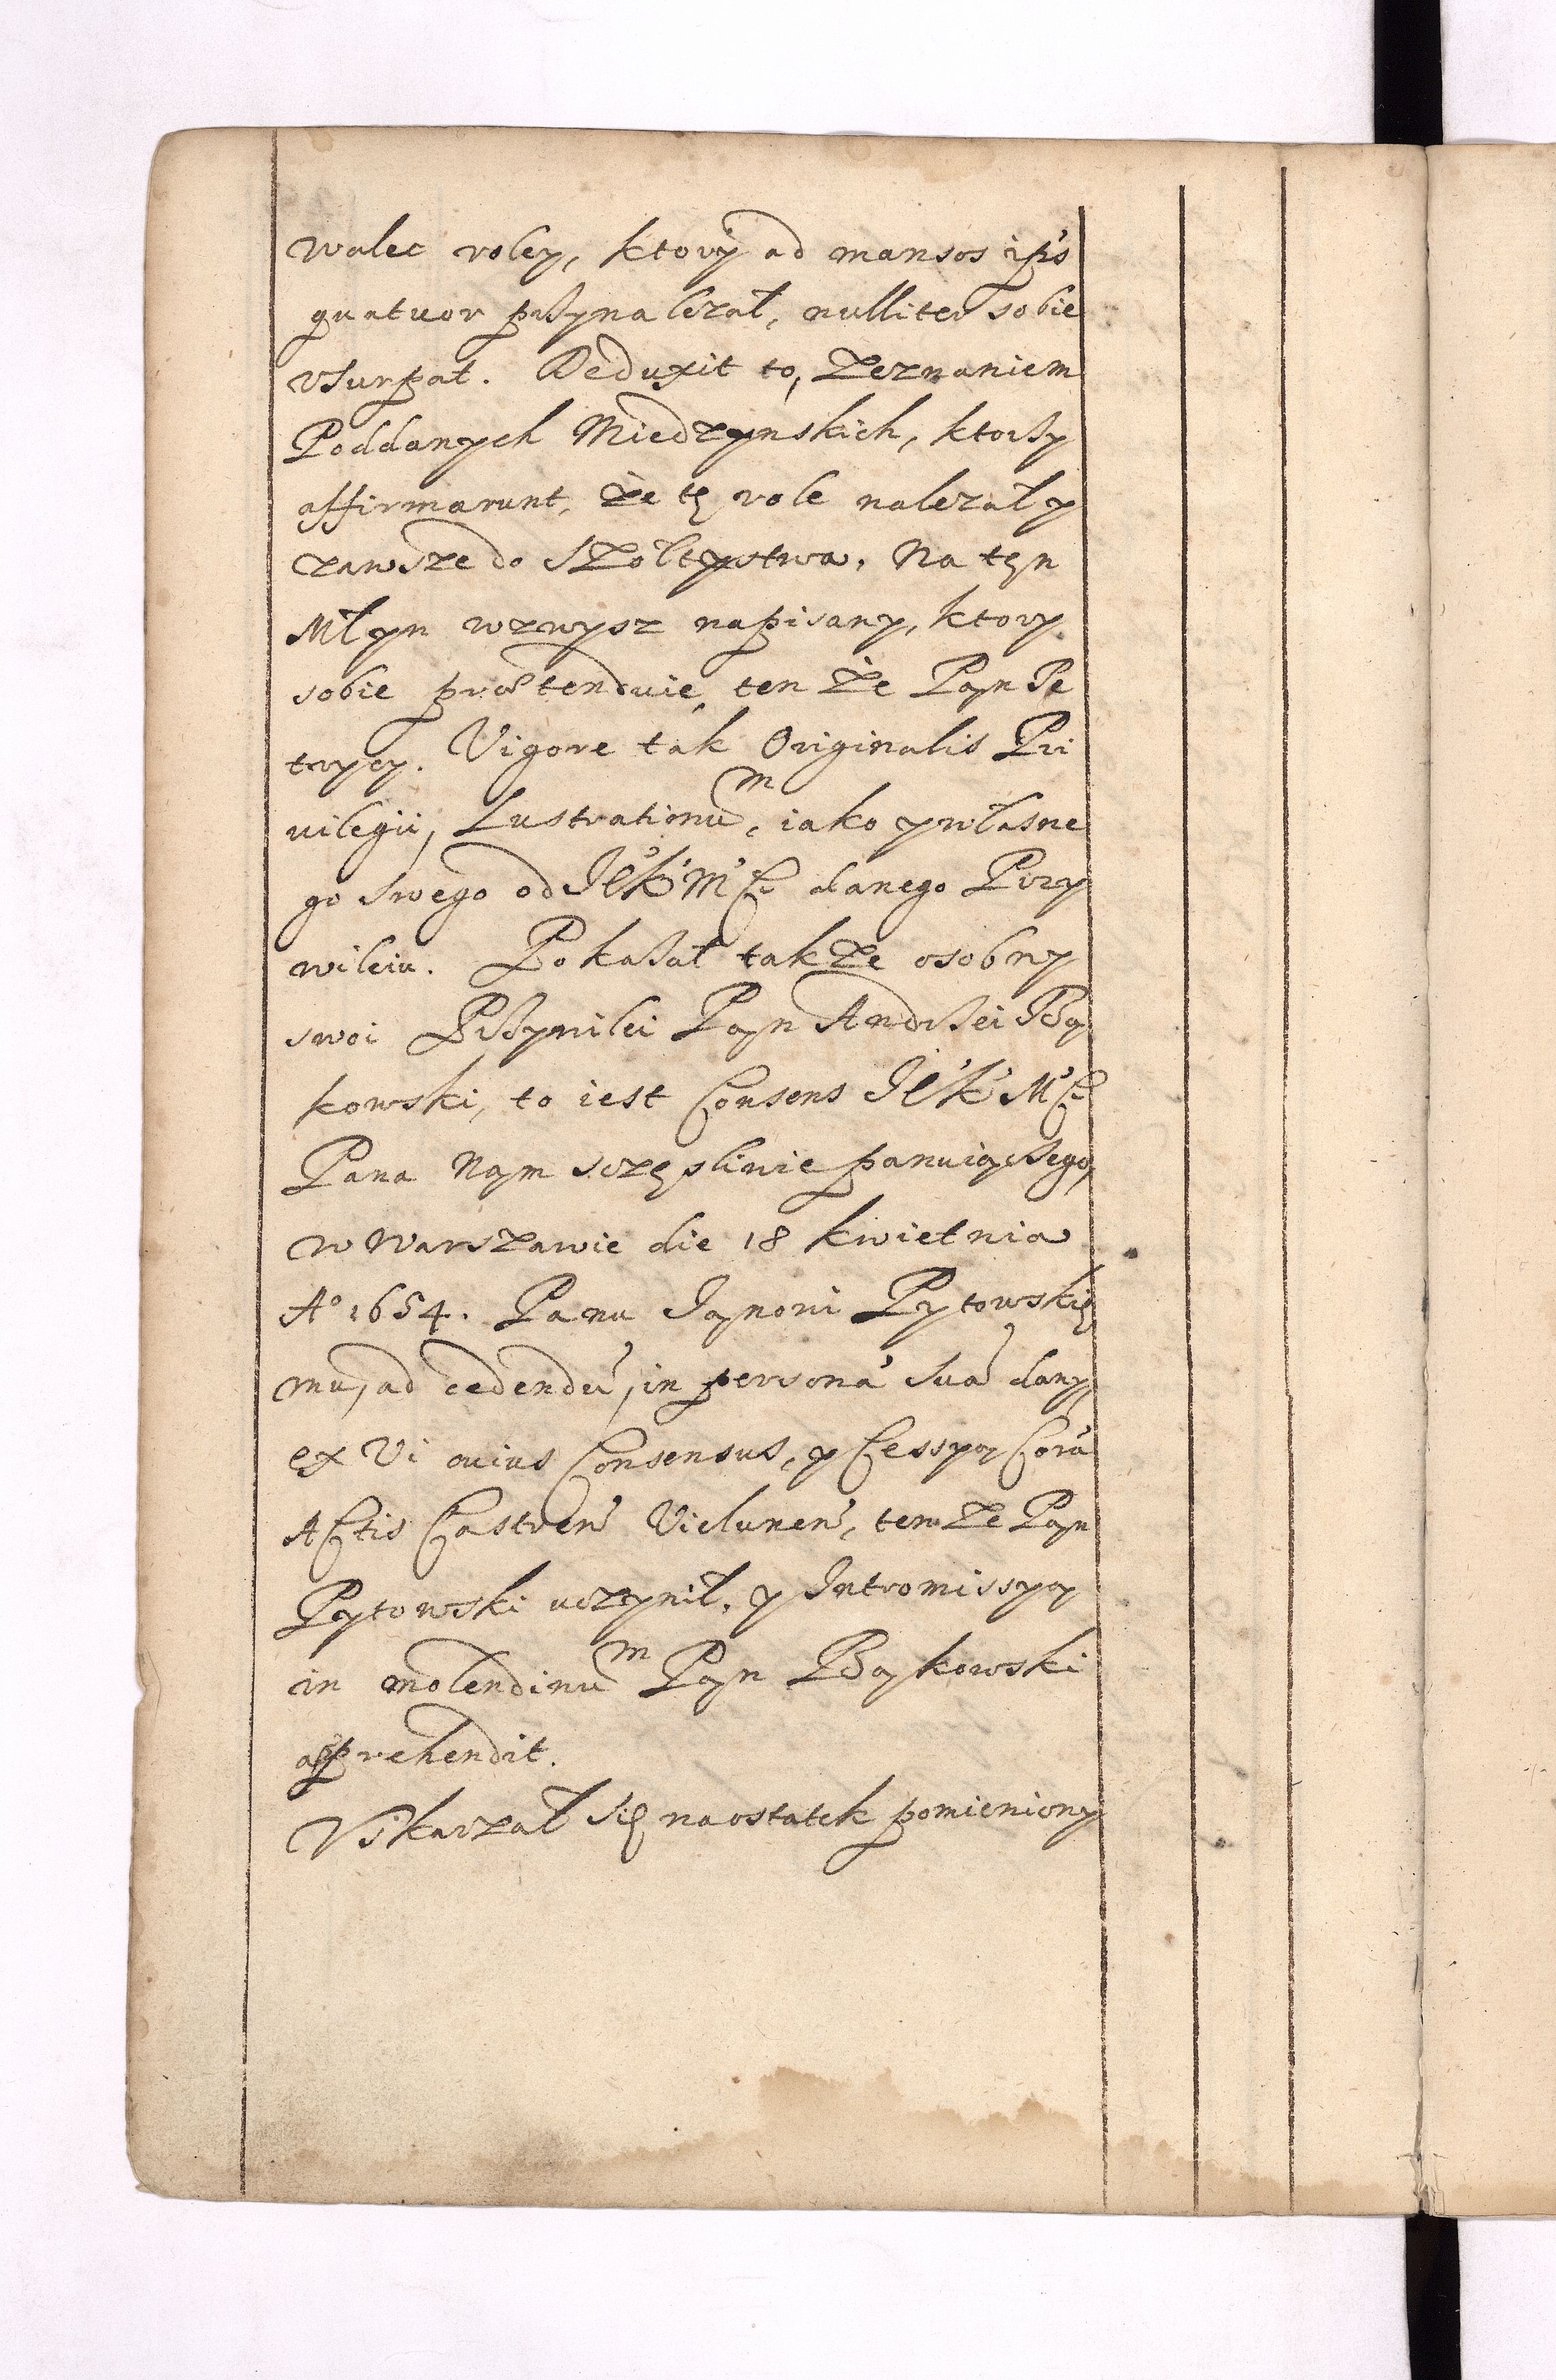 walec roley, ktory ad mansos ip's
quatuor przynalezał, nulliter sobie
vsurpał. Deduxit to, zeznaniem
Poddanych Miedzynskich, ktorzy
affirmarunt, że tę role nalezały
zawsze do Szołtystwa. Na tęn
Młyn wzwysz napisany, ktory
sobie prætenduie, ten że Pąn Pe
trycy. Vigore tak Originalis Pri
uilegii, Lustrationum, iako y własne
go swego od JeKMCi danego Przy
wileiu. Pokazał takze osobny
swoi Przywilei Pąn Andrzei Bą
kowski, to iest Consens JeKMCi
Pana Nąm sczęsliwie panuiączego,
w Warszawie die 18 kwietnia
Aº 1654. Panu Jąnowi Pytowskie
mu, ad cedendũ, in personã suã dany,
ex Vi cuius Consensus, y Cessyą Corã
Actis Castren' Vielunen', tenze Pąn
Pytowski vczynił, y Intromissyą
in molendinum Pąn Bąkowski
apprehendit.
Vskarzał się naostatek pomieniony